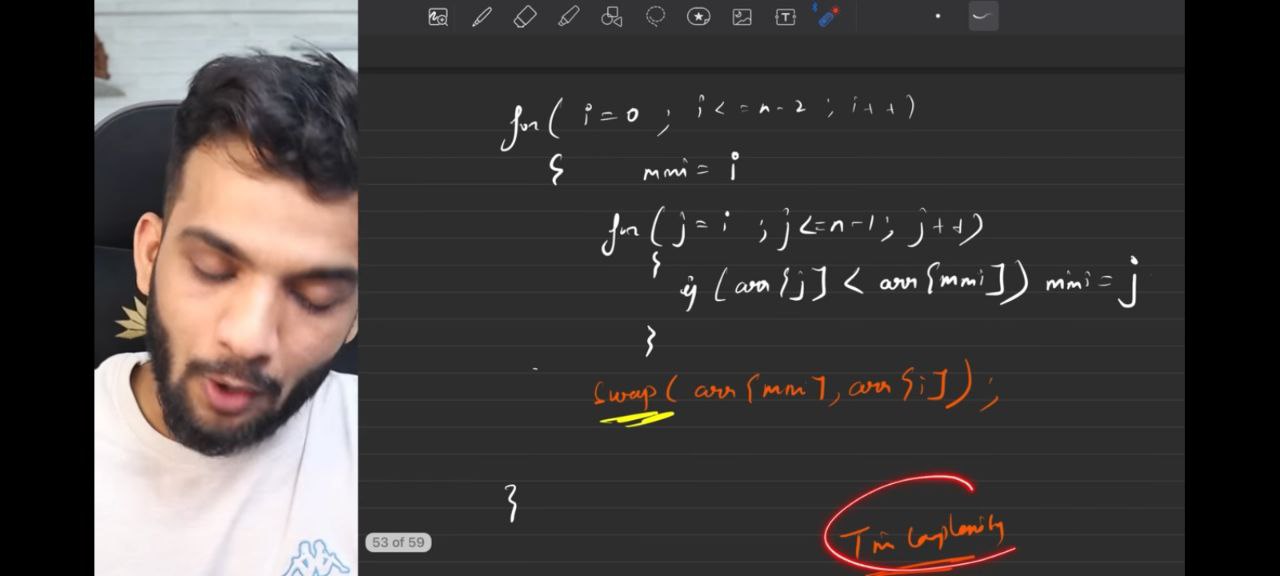 for( i=0 ; i<=n-2 ; i++)
{ mini = i
for( j=i ; j<=n-1; j++)
{
if (arr[j] < arr[mini]) mini = j
}
Swap( arr[mini], arr[i]);
}
53 of 59
Time Complexity